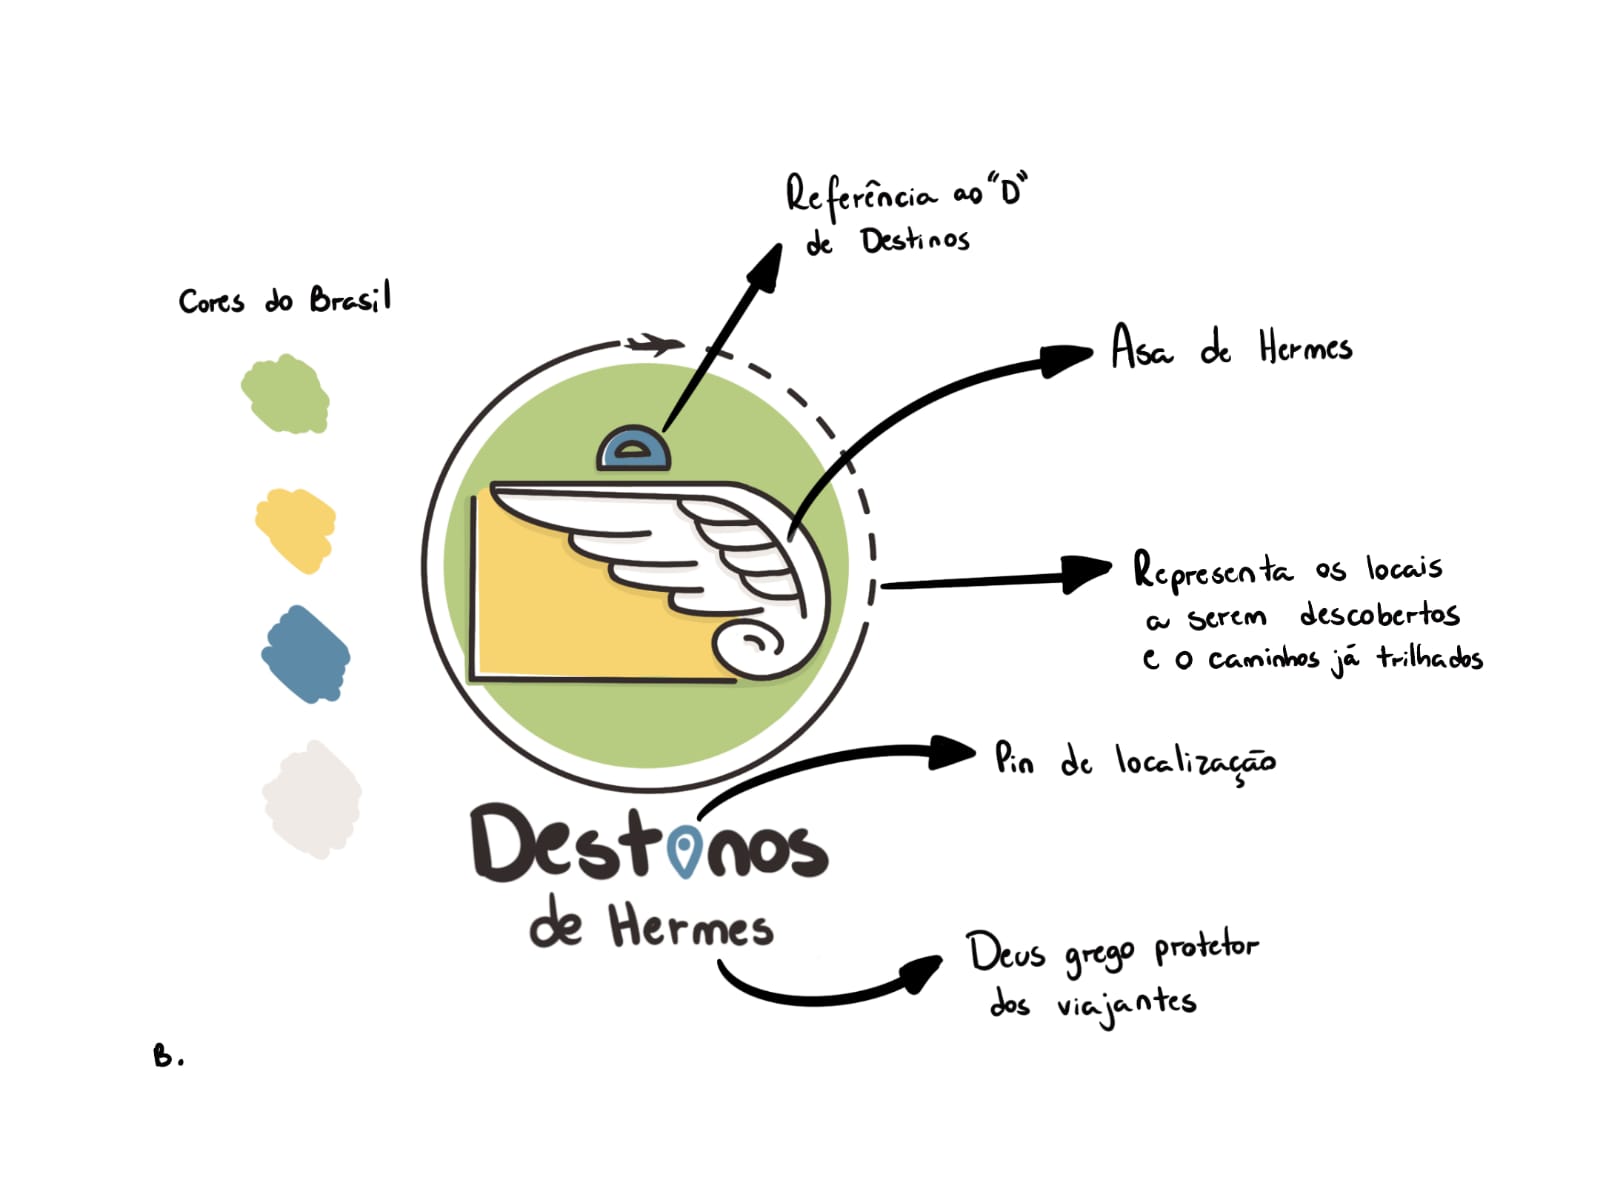 Referência ao "D"
de Destinos
Cores do Brasil
Asa de Hermes
Representa os locais
a serem descobertos
e o caminhos já trilhados
Pin de localização
Destinos
de Hermes
Deus grego protetor
dos viajantes
B.